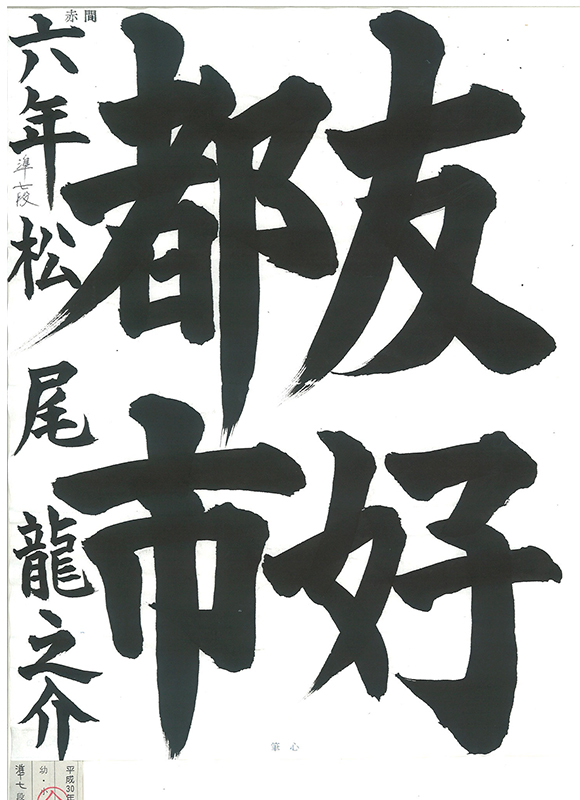 友好
都市
六年 松尾龍之介
準七段
赤間
心筆
平成30年
幼・小
準七段